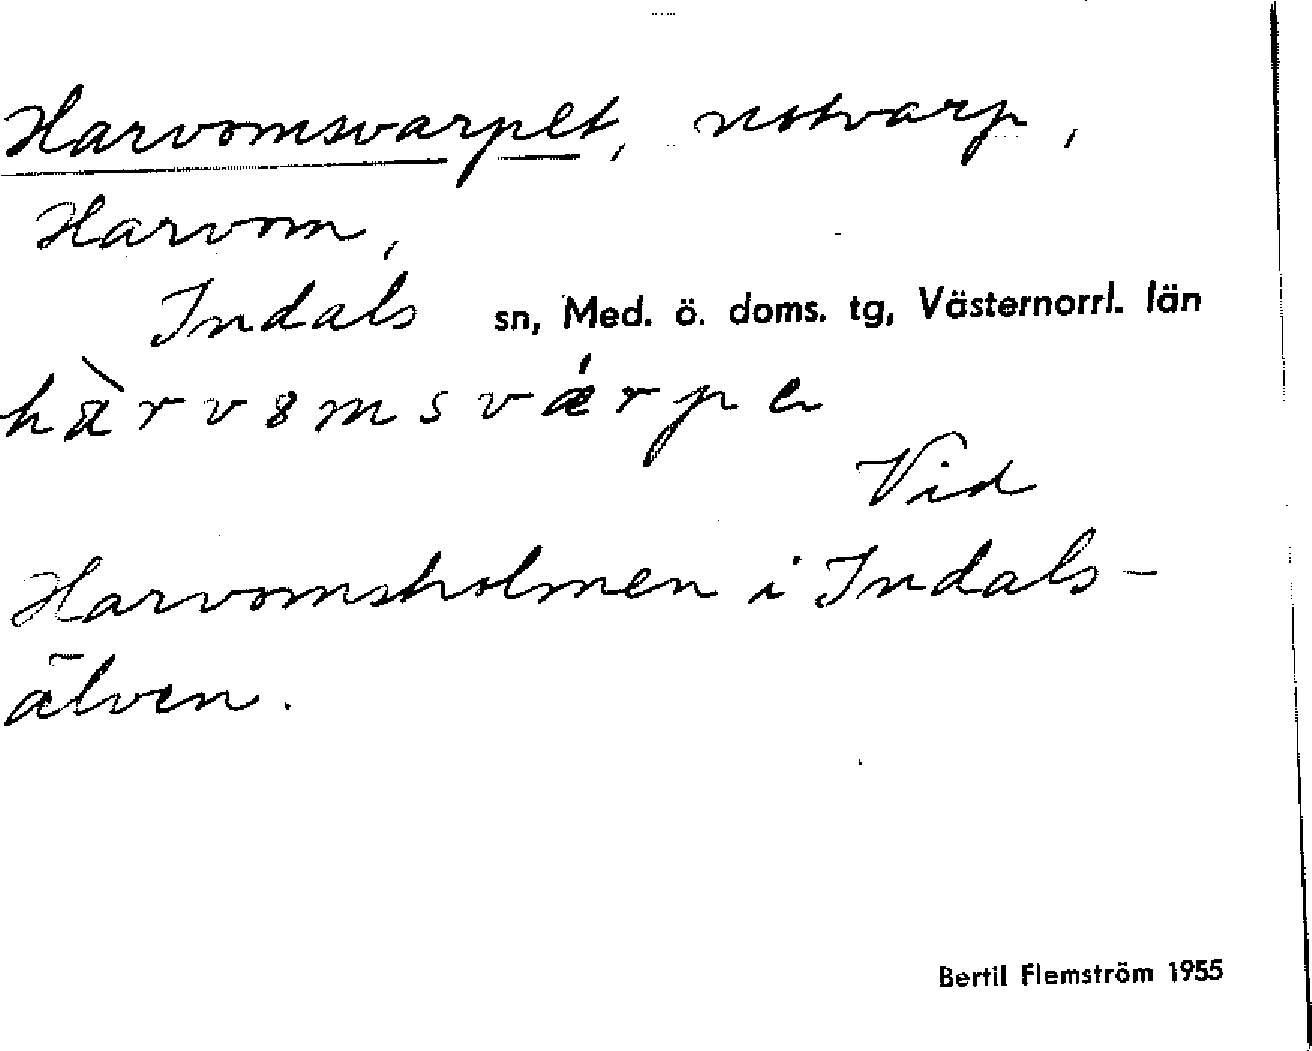 Harvomsvarpet, notvarp,
Harvom,
Indals sn, Med. ö. doms. tg, Västernorrl. län
hàrvomsvárpe
Vid
Harvomsholmen i Indals-
älven.
Bertil Flemström 1955